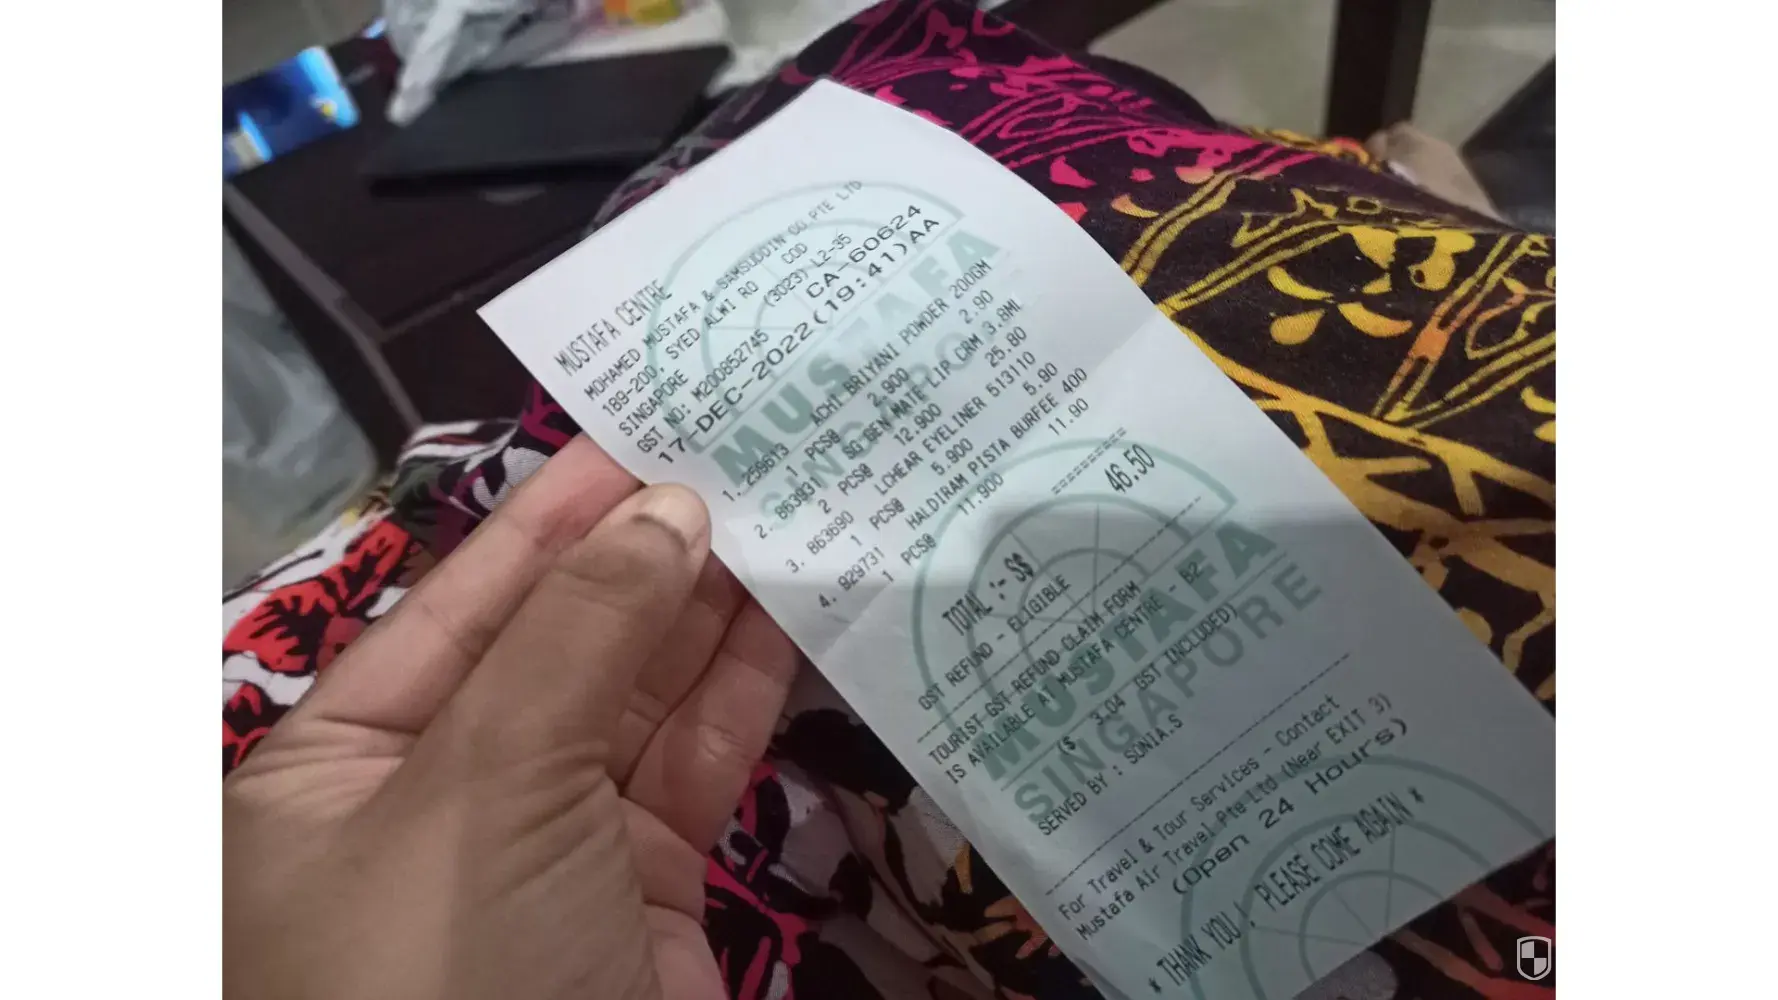 MUSTAFA CENTRE
MOHAMED MUSTAFA & SAMSUDDIN CO.PTE LTD
189-200, SYED ALWI RD COD
SINGAPORE (3023) L2-35
GST NO: M200852745 CA-60624
17-DEC-2022(19:41)AA
1. 259613 ACHI BRIYANI POWDER 200GM
1 PCS@ 2.900 2.90
2. 863931 SG GEN MATE LIP CRM 3.8ML
2 PCS@ 12.900 25.80
3. 863690 LCHEAR EYELINER 513110
1 PCS@ 5.900 5.90
4. 929731 HALDIRAM PISTA BURFEE 400
1 PCS@ 11.900 11.90
TOTAL :- S$ 46.50
GST REFUND - ELIGIBLE
TOURIST GST REFUND CLAIM FORM
IS AVAILABLE AT MUSTAFA CENTRE - B2
($ 3.04 GST INCLUDED)
SERVED BY : SONIA.S
For Travel & Tour Services - Contact
Mustafa Air Travel Pte Ltd (Near EXIT 3)
(Open 24 Hours)
* THANK YOU ! PLEASE COME AGAIN *
MUSTAFA
SINGAPORE
MUSTAFA
SINGAPORE